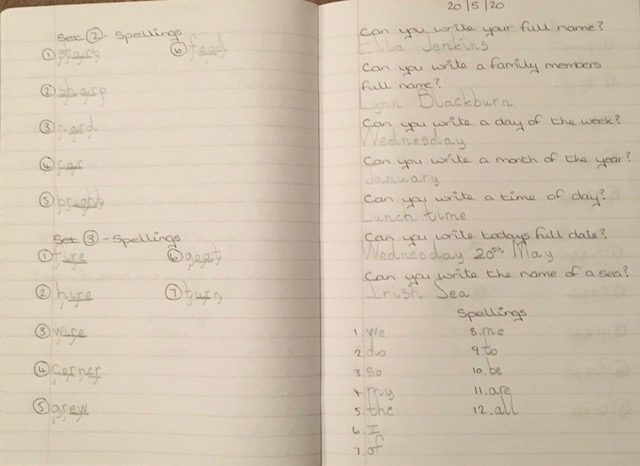 Set ② - Spellings
① stars ⑥ food
② sharp
③ hard
④ car
⑤ bright
Set ③ - Spellings
① ture ⑥ goat
② hire ⑦ turn
③ wire
④ corner
⑤ grew
20/5/20
Can you write your full name?
Ella Jenkins
Can you write a family members
full name?
Lynn Blackburn
Can you write a day of the week?
Wednesday
Can you write a month of the year?
January
Can you write a time of day?
Lunch time
Can you write todays full date?
Wednesday 20th May
Can you write the name of a sea?
Irish Sea
Spellings
1. we 8. me
2. do 9. to
3. so 10. be
4. my 11. are
5. the 12. all
6. I
7. of